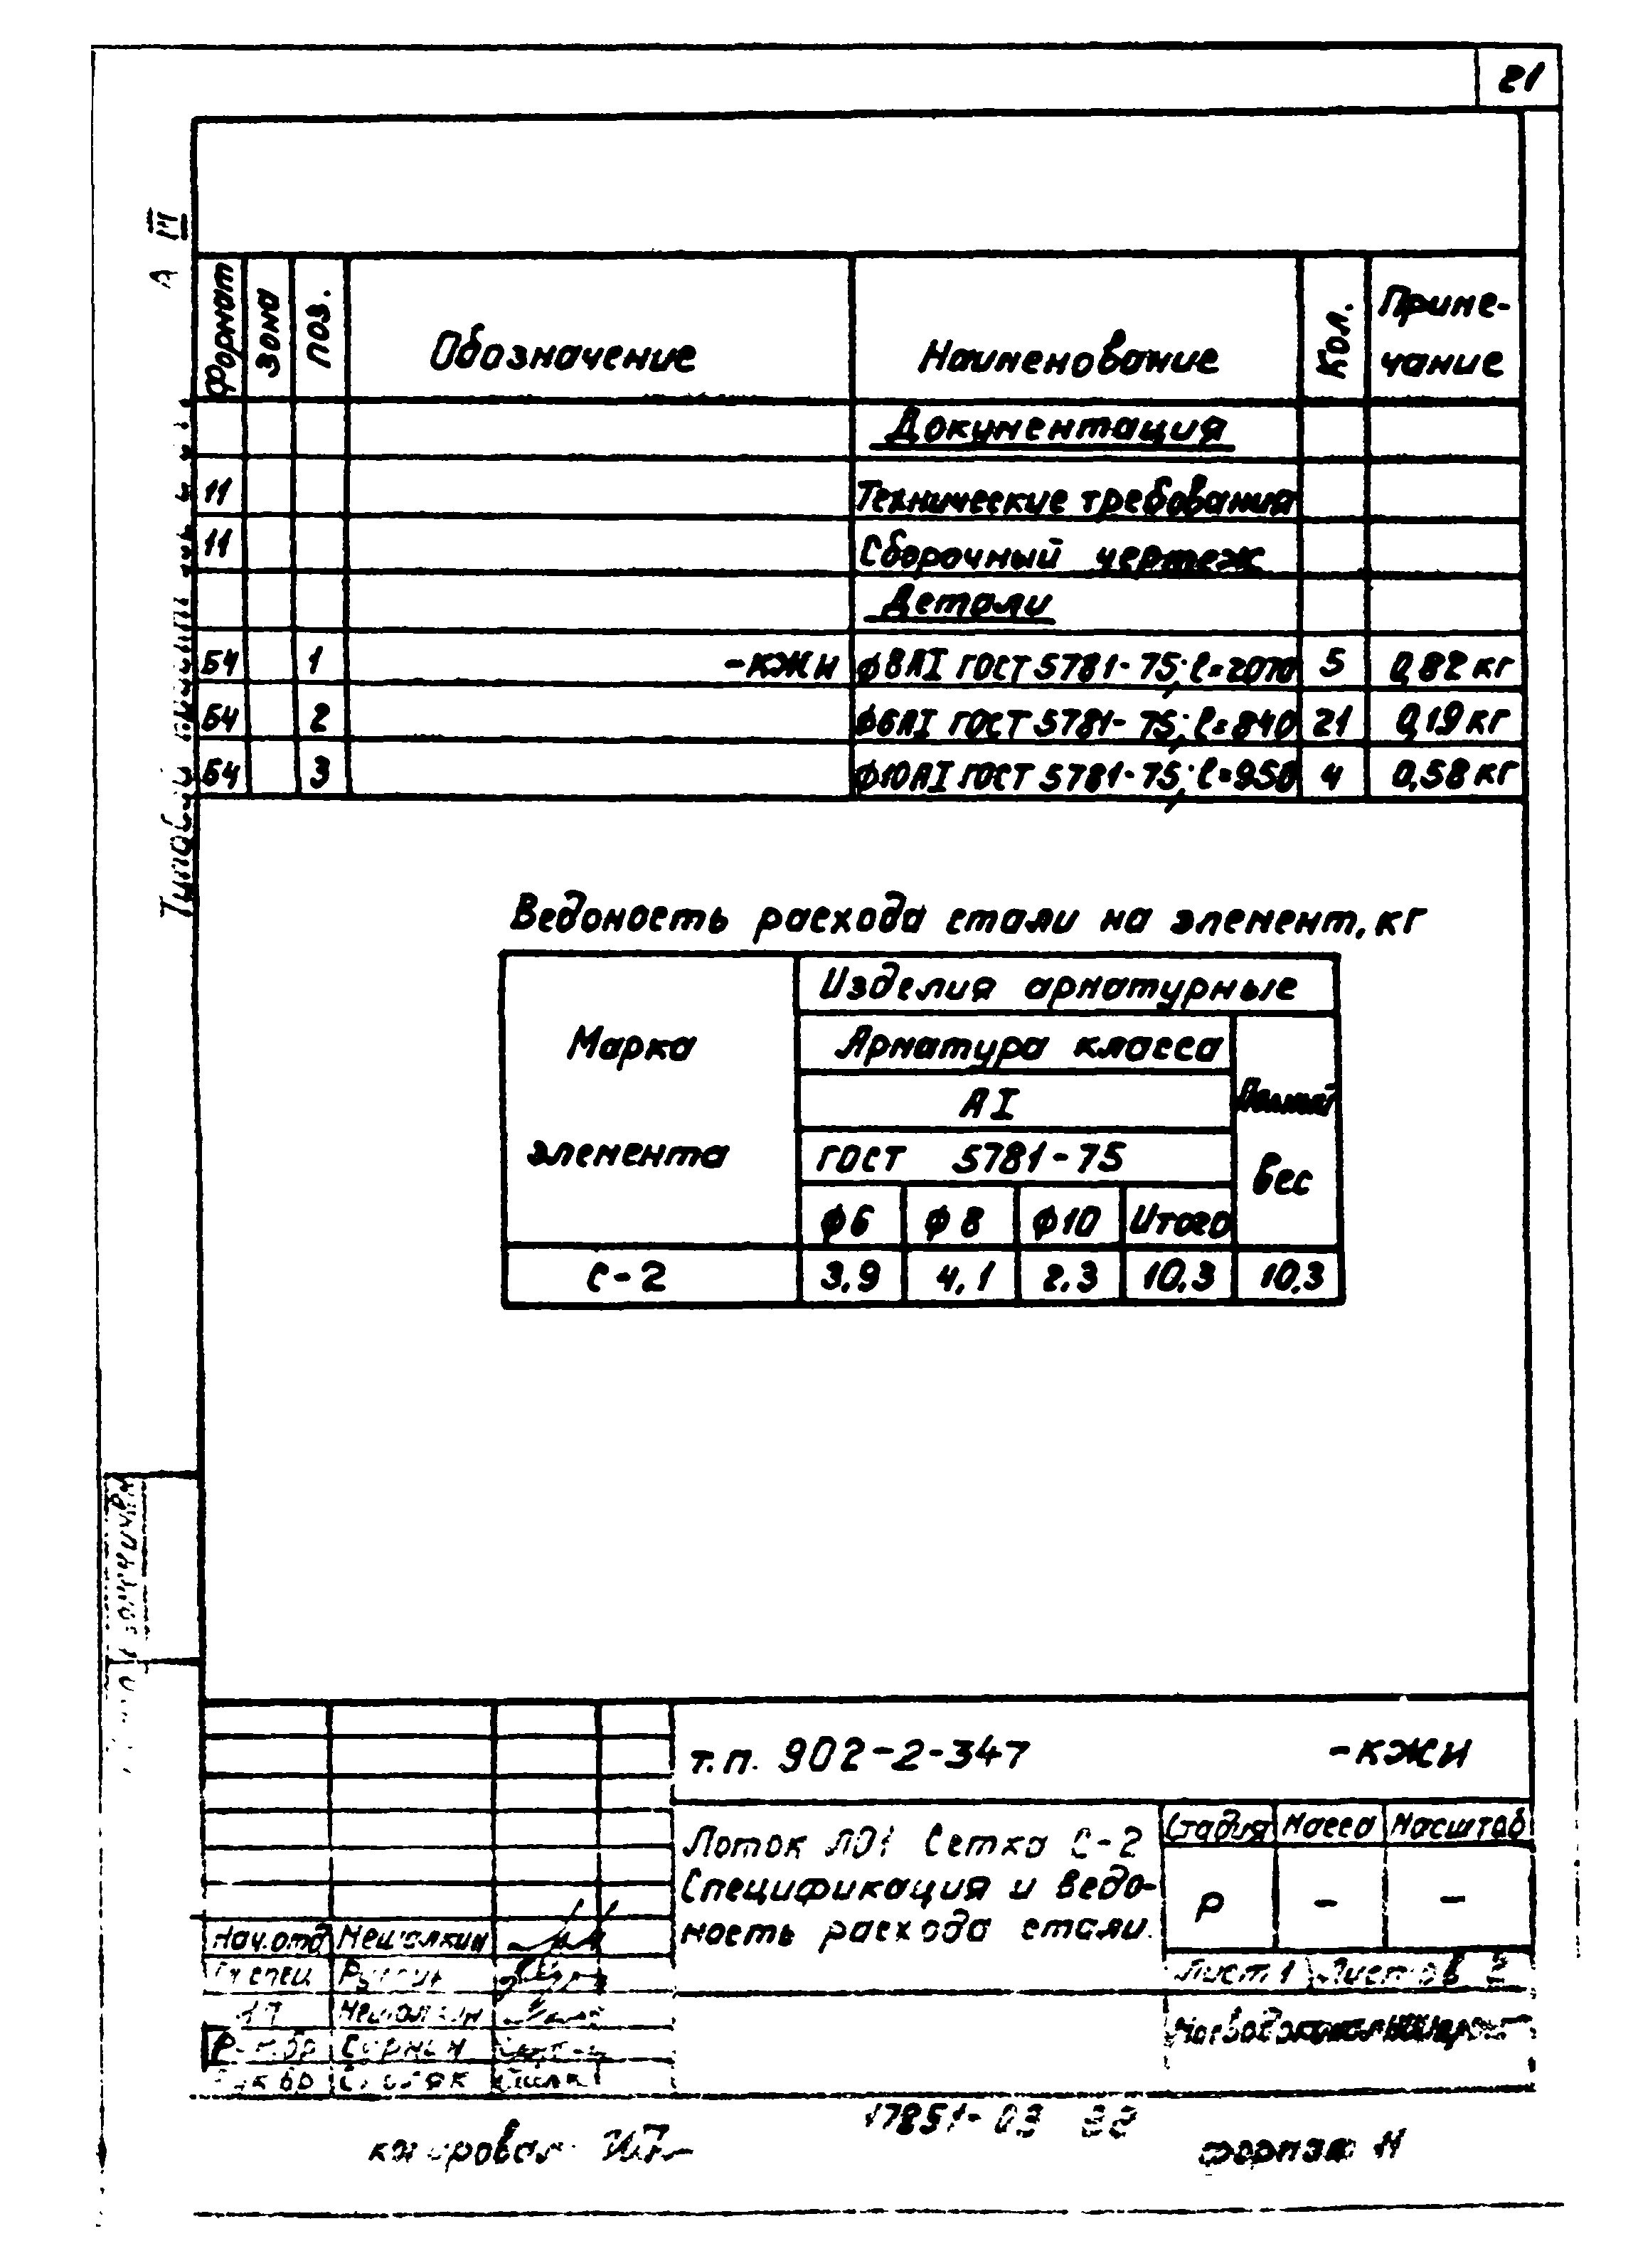 21
А III
Формат Зона Поз. Обозначение Наименование Кол. Приме-
чание
Документация
11 Технические требования
11 Сборочный чертеж
Детали
БЧ 1 -КЖИ ф8АI ГОСТ 5781-75; l=2070 5 0,82 кг
БЧ 2 ф6АI ГОСТ 5781-75; l=840 21 0,19 кг
БЧ 3 ф10АI ГОСТ 5781-75; l=950 4 0,58 кг
Ведомость расхода стали на элемент, кг
Марка
элемента
Изделия арматурные
Арматура класса
АI
ГОСТ 5781-75
ф6 ф8 ф10 Итого
Полный
вес
С-2 3,9 4,1 2,3 10,3 10,3
т.п. 902-2-347 -КЖИ
Лоток ЛО1 Сетка С-2
Спецификация и ведо-
мость расхода стали.
Стадия Масса Масштаб
Р - -
Лист 1 Листов 2
Нач.отд Мешалкин
17851-03 22
копировал
формат 11